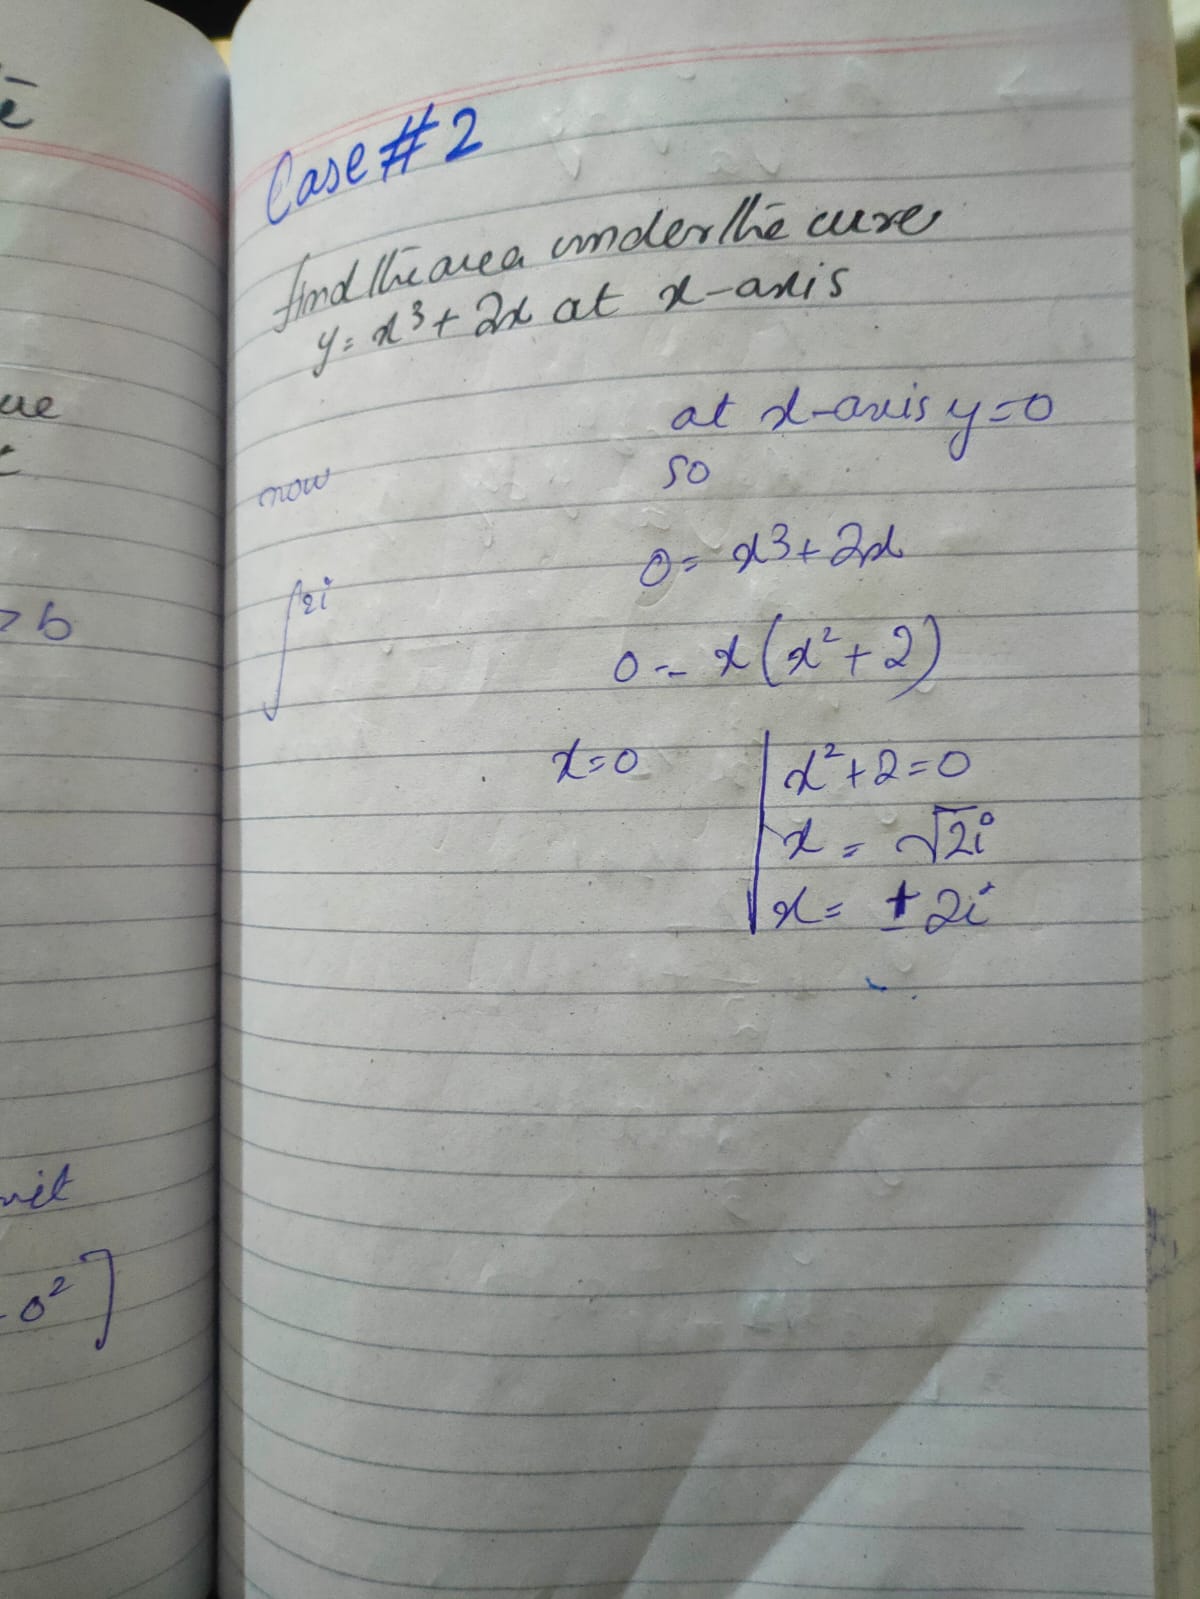 Case #2
find the area under the curve
y = x³ + 2x at x-axis
at x-axis y=0
so
now
0 = x³ + 2x
∫ 2i
0 = x(x² + 2)
x=0
x²+2=0
x = √2i
x = ±2i
ue
>b
-0²]